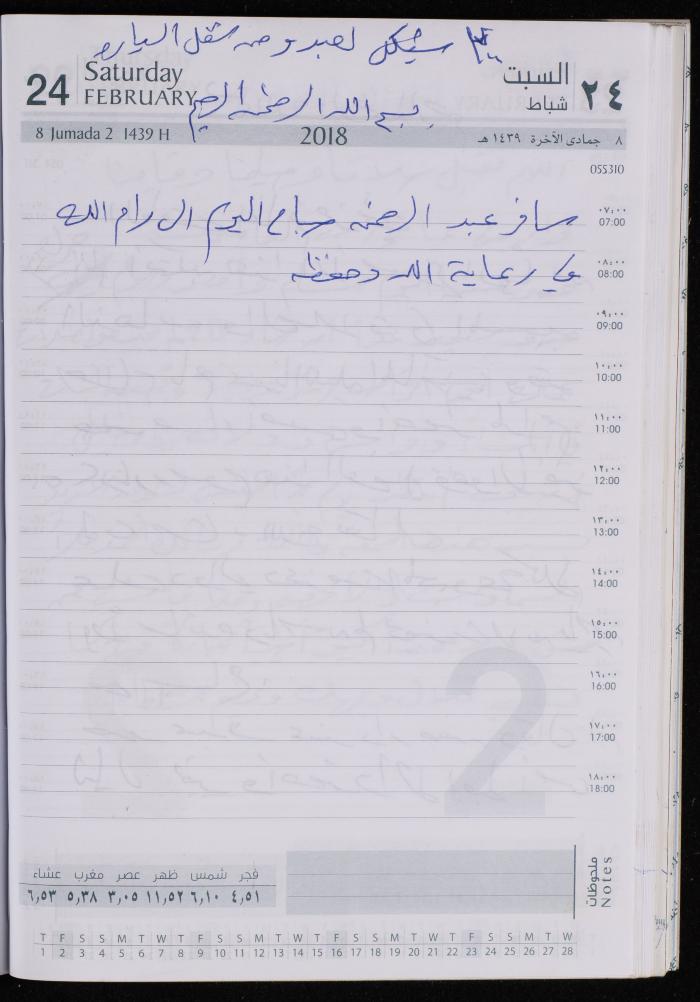 ٣٠ شيكل لعبد و من شغل السياره
24 Saturday FEBRUARY
السبت شباط ٢٤
بسم الله الرحمن الرحيم
8 Jumada 2 1439 H 2018 ٨ جمادى الآخرة ١٤٣٩ هـ
055310
سافر عبد الرحمن صباح اليوم الى رام الله
٠٧:٠٠
07:00
في رعاية الله وحفظه
٠٨:٠٠
08:00
٠٩:٠٠
09:00
١٠:٠٠
10:00
١١:٠٠
11:00
١٢:٠٠
12:00
١٣:٠٠
13:00
١٤:٠٠
14:00
١٥:٠٠
15:00
١٦:٠٠
16:00
١٧:٠٠
17:00
١٨:٠٠
18:00
2
فجر شمس ظهر عصر مغرب عشاء
٤,٥١ ٦,١٠ ١١,٥٢ ٣,٠٥ ٥,٣٨ ٦,٥٣
ملحوظات
Notes
T F S S M T W T F S S M T W T F S S M T W T F S S M T W
1 2 3 4 5 6 7 8 9 10 11 12 13 14 15 16 17 18 19 20 21 22 23 24 25 26 27 28